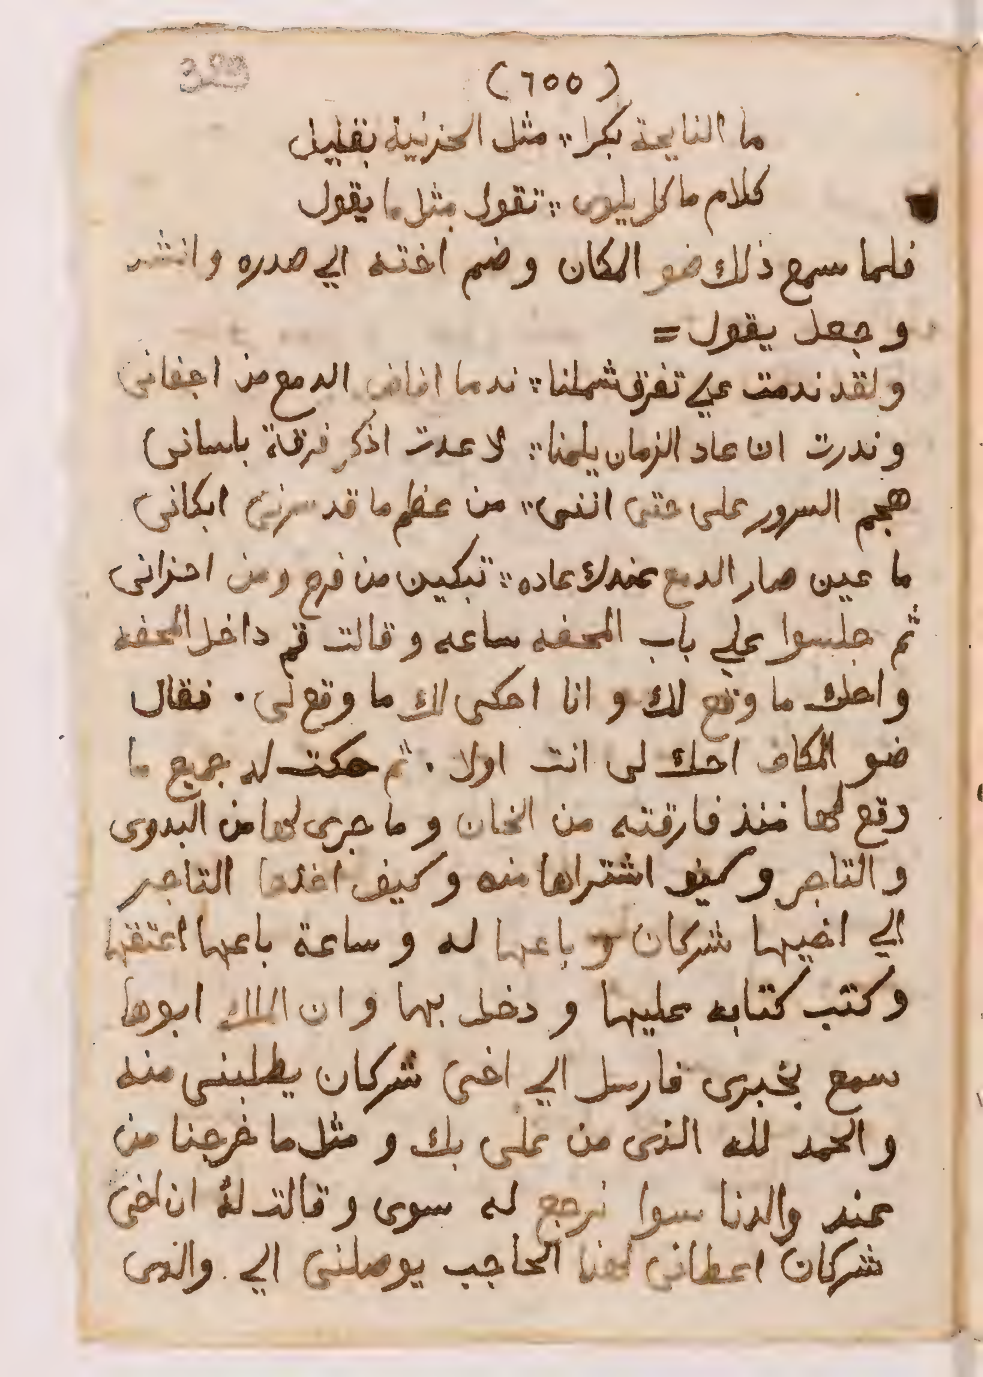 389
(٦٥٥)
ما النايحة بكرا :: مثل الحزنية بقليل
كلام ما كل بليوى :: تقول مثل ما يقول
فلما سمع ذلك ضو المكان وضم اخته الي صدره وانشد
وجعل يقول =
ولقد ندمت علي تفرق شملنا :: ندما افاض الدمع من اجفانى
وندرت ان عاد الزمان يلمنا :: لا عدت اذكر فرقاة بلسانى
هجم السرور على حتى اننى :: من عظم ما قد سرنى ابكانى
ما عين صار الدمع عندك عاده :: تبكين من فرح ومن احزانى
ثم جلسوا علي باب المحفه ساعه وقالت قم داخل المحفه
واحك ما وقع لك وانا احكى لك ما وقع لى . فقال
ضو المكان احك لى انت اولا . ثم حكت له جميع ما
وقع لها منذ فارقته من الخان وما جرى لها من البدوى
والتاجر وكيف اشتراها منه وكيف اخذها التاجر
الي اخيها شركان وباعها له وساعة باعها اعتقها
وكتب كتابه عليها ودخل بها وان الملك ابوها
سمع بخبرى فارسل الي اخى شركان يطلبنى منه
والحمد لله الذى من على بك ومثل ما خرجنا من
عند والدنا سوا نرجع له سوى وقالت له ان اخى
شركان اعطانى لهذا الحاجب يوصلنى الي والدى